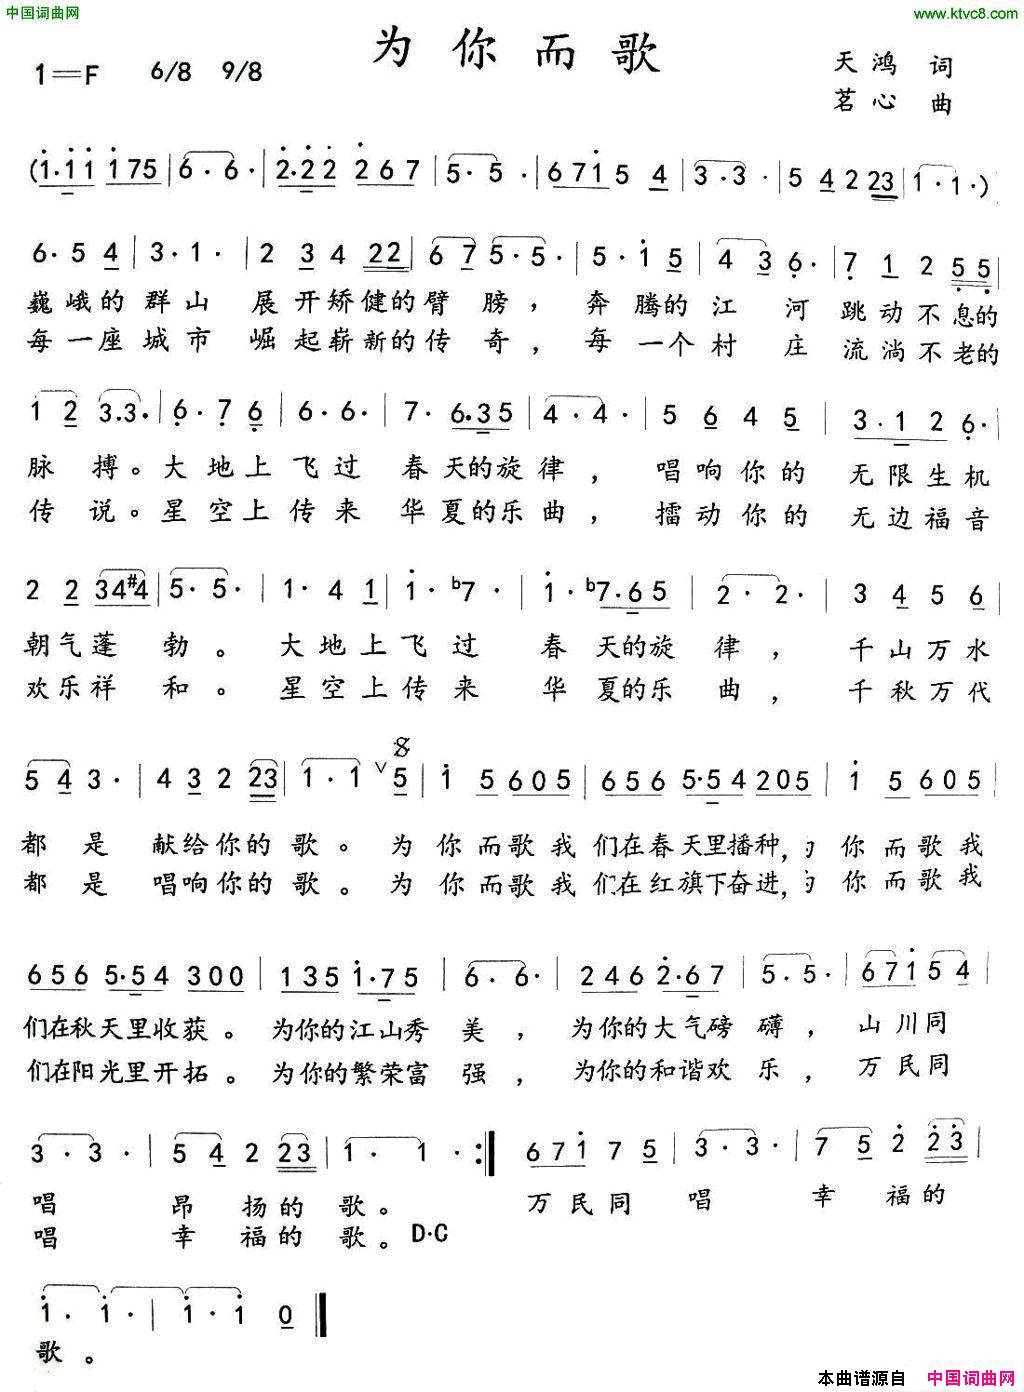 中国词曲网
www.ktvc8.com
为你而歌
1=F 6/8 9/8
天鸿 词
茗心 曲
(1·11 175|6·6·|2·22 267|5·5·|6715 4|3·3·|5 4 2 23|1·1·)
6·5 4|3·1·|2 3 4 22|6 7 5·5·|5·1 5|4 3 6·|7 1 2 55|
巍峨的群山 展开矫健的臂膀，奔腾的江河跳动不息的
每一座城市 崛起崭新的传奇，每一个村庄流淌不老的
1 2 3·3·|6·7 6|6·6·|7·6·35|4·4·|5 6 4 5|3·1 2 6·|
脉搏。大地上飞过 春天的旋律，唱响你的 无限生机
传说。星空上传来 华夏的乐曲，擂动你的 无边福音
2 2 34#4|5·5·|1·4 1|1·b7·|1·b7·65|2·2·|3 4 5 6|
朝气蓬勃。大地上飞过 春天的旋律，千山万水
欢乐祥和。星空上传来 华夏的乐曲，千秋万代
5 4 3·|4 3 2 23|1·1 5|1 5 605|656 5·54 205|1 5 605|
都是 献给你的歌。为你而歌我们在春天里播种，为你而歌我
都是 唱响你的歌。为你而歌我们在红旗下奋进，为你而歌我
656 5·54 300|135 1·75|6·6·|246 2·67|5·5·|671 5 4|
们在秋天里收获。为你的江山秀美，为你的大气磅礴，山川同
们在阳光里开拓。为你的繁荣富强，为你的和谐欢乐，万民同
3·3·|5 4 2 23|1·1·:‖671 7 5|3·3·|7 5 2 23|
唱 昂扬的歌。 万民同唱 幸福的
唱 幸福的歌。D·C
1·1·|1·1 0‖
歌。
本曲谱源自 中国词曲网